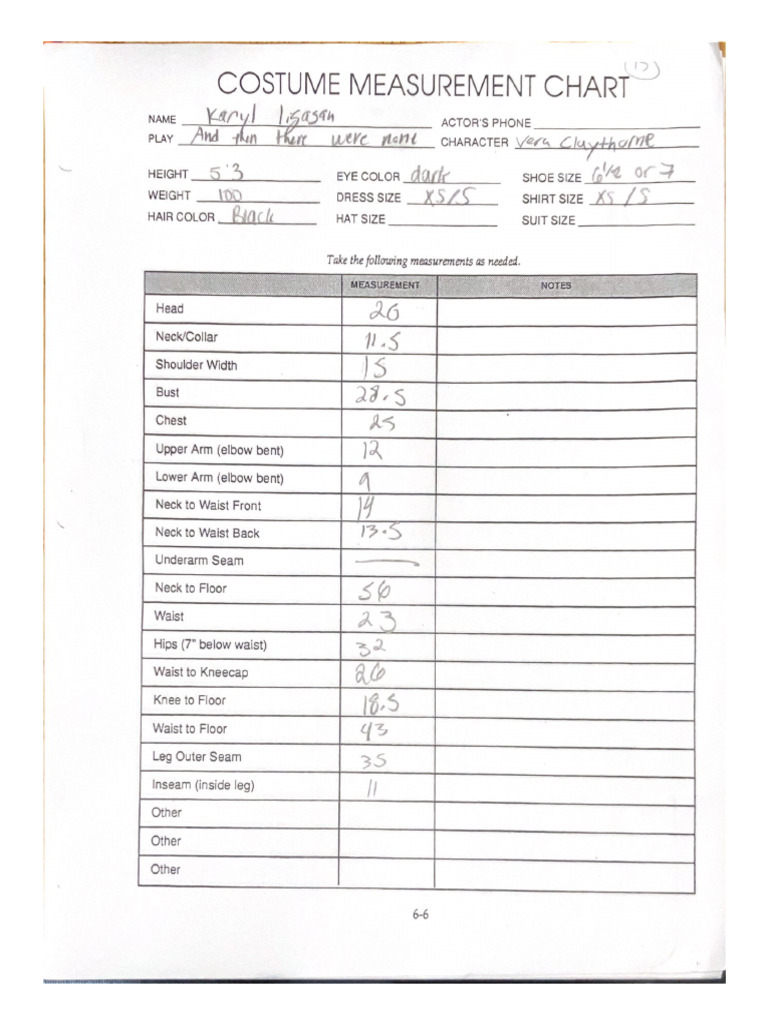 (13)
COSTUME MEASUREMENT CHART
NAME Karyl ligasan ACTOR'S PHONE
PLAY And then there were none CHARACTER Vera Claythorne
HEIGHT 5'3 EYE COLOR dark SHOE SIZE 6½ or 7
WEIGHT 100 DRESS SIZE XS/S SHIRT SIZE XS/S
HAIR COLOR Black HAT SIZE SUIT SIZE
Take the following measurements as needed.
MEASUREMENT NOTES
Head 20
Neck/Collar 11.5
Shoulder Width 15
Bust 28.5
Chest 25
Upper Arm (elbow bent) 12
Lower Arm (elbow bent) 9
Neck to Waist Front 14
Neck to Waist Back 13.5
Underarm Seam —
Neck to Floor 56
Waist 23
Hips (7" below waist) 32
Waist to Kneecap 26
Knee to Floor 18.5
Waist to Floor 43
Leg Outer Seam 35
Inseam (inside leg) 11
Other
Other
Other
6-6